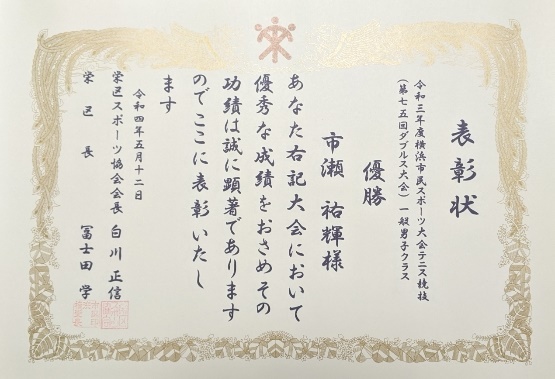 表彰状
令和三年度横浜市民スポーツ大会テニス競技
(第七五回ダブルス大会)一般男子クラス
優勝
市瀬 祐輝様
あなた右記大会において
優秀な成績をおさめその
功績は誠に顕著であります
のでここに表彰いたし
ます
令和四年五月十二日
栄区スポーツ協会会長 白川 正信
栄区長 冨士田 学